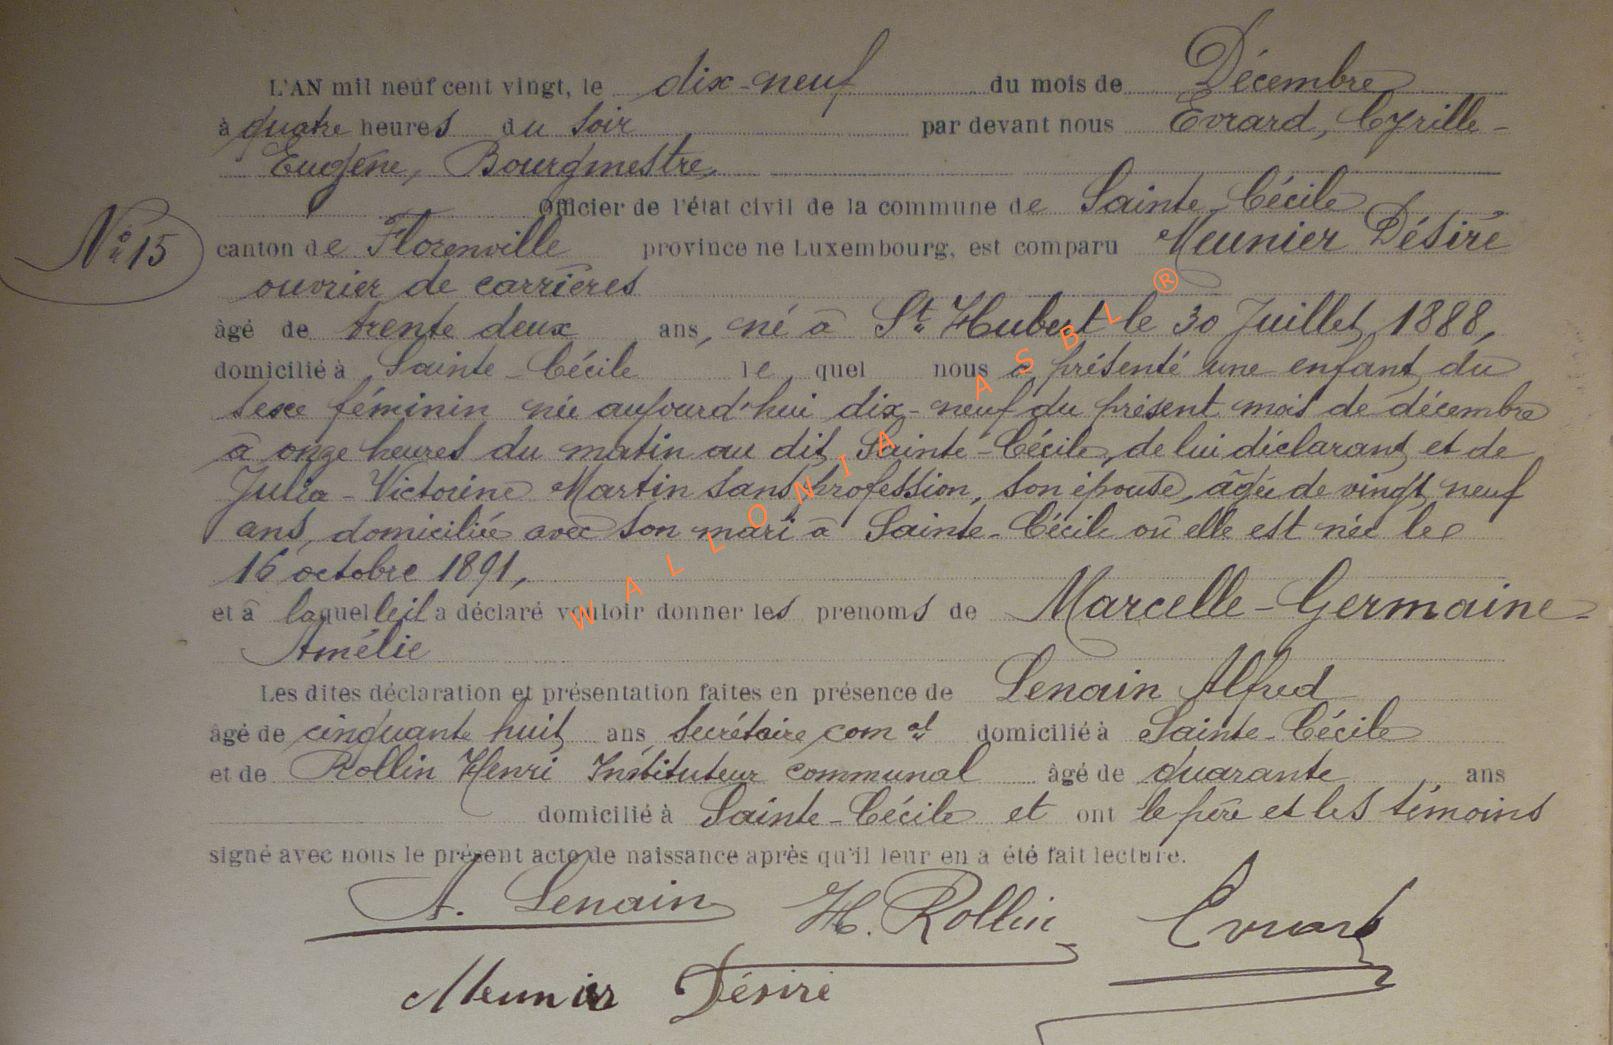 L'AN mil neuf cent vingt, le dix-neuf du mois de Décembre
à quatre heures du soir par devant nous Evrard, Cyrille-
Eugène, Bourgmestre,
Officier de l'état civil de la commune de Sainte-Cécile
N° 15
canton de Florenville province ne Luxembourg, est comparu Meunier Désiré
ouvrier de carrières
âgé de trente deux ans, né à St Hubert le 30 Juillet 1888,
domicilié à Sainte-Cécile lequel nous a présenté une enfant du
sexe féminin née aujourd'hui dix-neuf du présent mois de décembre
à onze heures du matin au dit Sainte-Cécile, de lui déclarant et de
Julia-Victorine Martin sans profession, son épouse, âgée de vingt neuf
ans, domiciliée avec son mari à Sainte-Cécile où elle est née le
16 octobre 1891,
et à laquelle il a déclaré vouloir donner les prenoms de Marcelle-Germaine-
Amélie
Les dites déclaration et présentation faites en présence de Lenain Alfred
âgé de cinquante huit ans, secrétaire com al domicilié à Sainte-Cécile
et de Rollin Henri Instituteur communal âgé de quarante ans
domicilié à Sainte-Cécile et ont le père et les témoins
signé avec nous le présent acte de naissance après qu'il leur en a été fait lecture.
A. Lenain H. Rollin Evrard
Meunier Désiré
WALLONIA ASBL ®